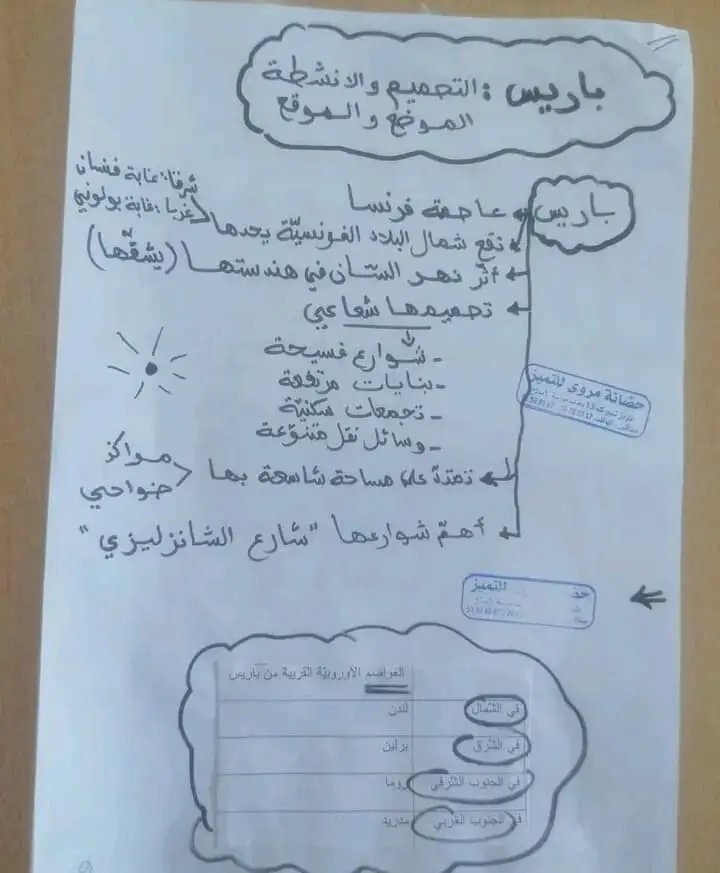 باريس : التصميم والانشطة
الموضع والموقع
باريس
عاصمة فرنسا
تقع شمال البلاد الفرنسيّة يحدها
شرقا: غابة فنسان
غربا: غابة بولوني
أثّر نهر السّان في هندستها (يشقّها)
تصميمها شعاعي
- شوارع فسيحة
- بنايات مرتفعة
- تجمعات سكنيّة
- وسائل نقل متنوّعة
تمتدّ على مساحة شاسعة بها
مراكز
ضواحي
أهمّ شوارعها "شارع الشانزليزي"
حضانة مروى للتميز
للتميز
العواصم الأوروبيّة القريبة من باريس
في الشّمال لندن
في الشّرق برلين
في الجنوب الشّرقي روما
في الجنوب الغربي مدريد